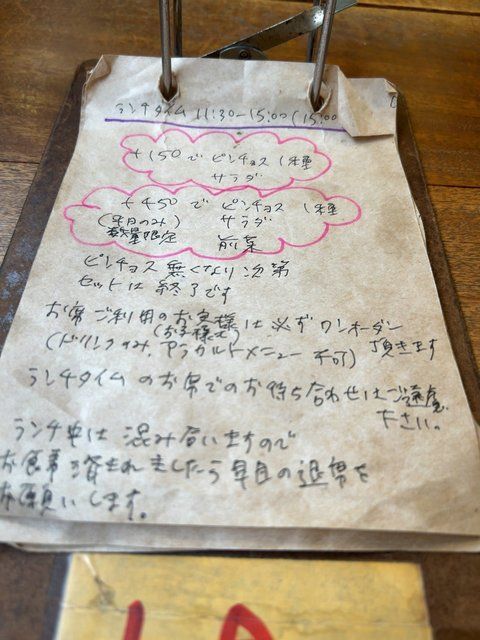 ランチタイム 11:30-15:00(15:00
+150で ピンチョス 1種
サラダ
+450で ピンチョス 1種
(平日のみ) サラダ
数量限定 前菜
ピンチョス 無くなり次第
セットは 終了です
お席ご利用のお客様は必ずワンオーダー
(お子様も)
(ドリンクのみ、アラカルトメニュー不可) 頂きます
ランチタイムのお席でのお待ち合わせはご遠慮
下さい。
ランチ中は 混み合いますので
お食事済まされましたら早目の退席を
お願いします。